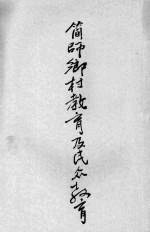 简師鄉村教育及民众教育